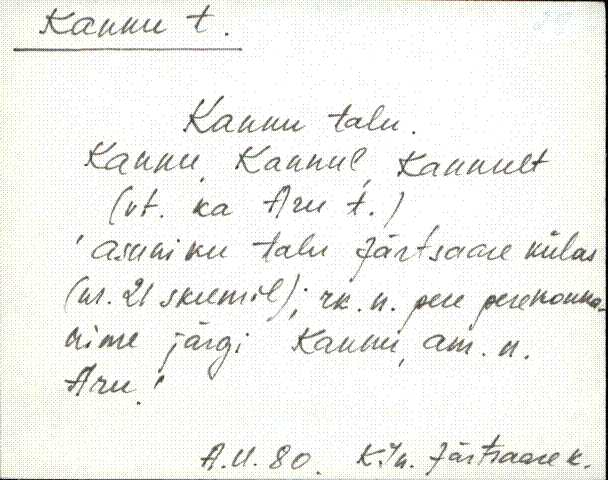 Kannu t.
Kannu talu.
Kannu, Kannul, Kannult
(vt. ka Aru t.)
'asuniku talu Järtsaare külas
(nr. 21 skeemil); rk. n. pere perekonna-
nime järgi Kannu, am. n.
Aru.'
A.U. 80. KJn. Järtsaare k.